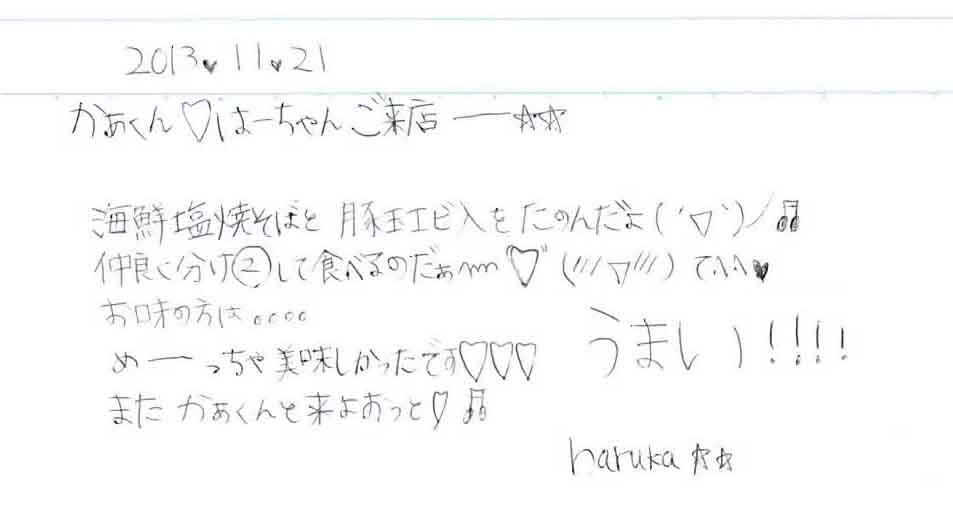 2013♥11♥21
かあくん♡はーちゃんご来店──☆☆
海鮮塩焼そばと豚玉エビ入をたのんだよ(´▽`)ノ♫
仲良く分け②して食べるのだぁ〰♡"(///▽///)て^^♥
お味の方は。。。。
うまい)!!!!
めーっちゃ美味しかったです♡♡♡
またかぁくんと来よおっと♡♫
haruka☆☆